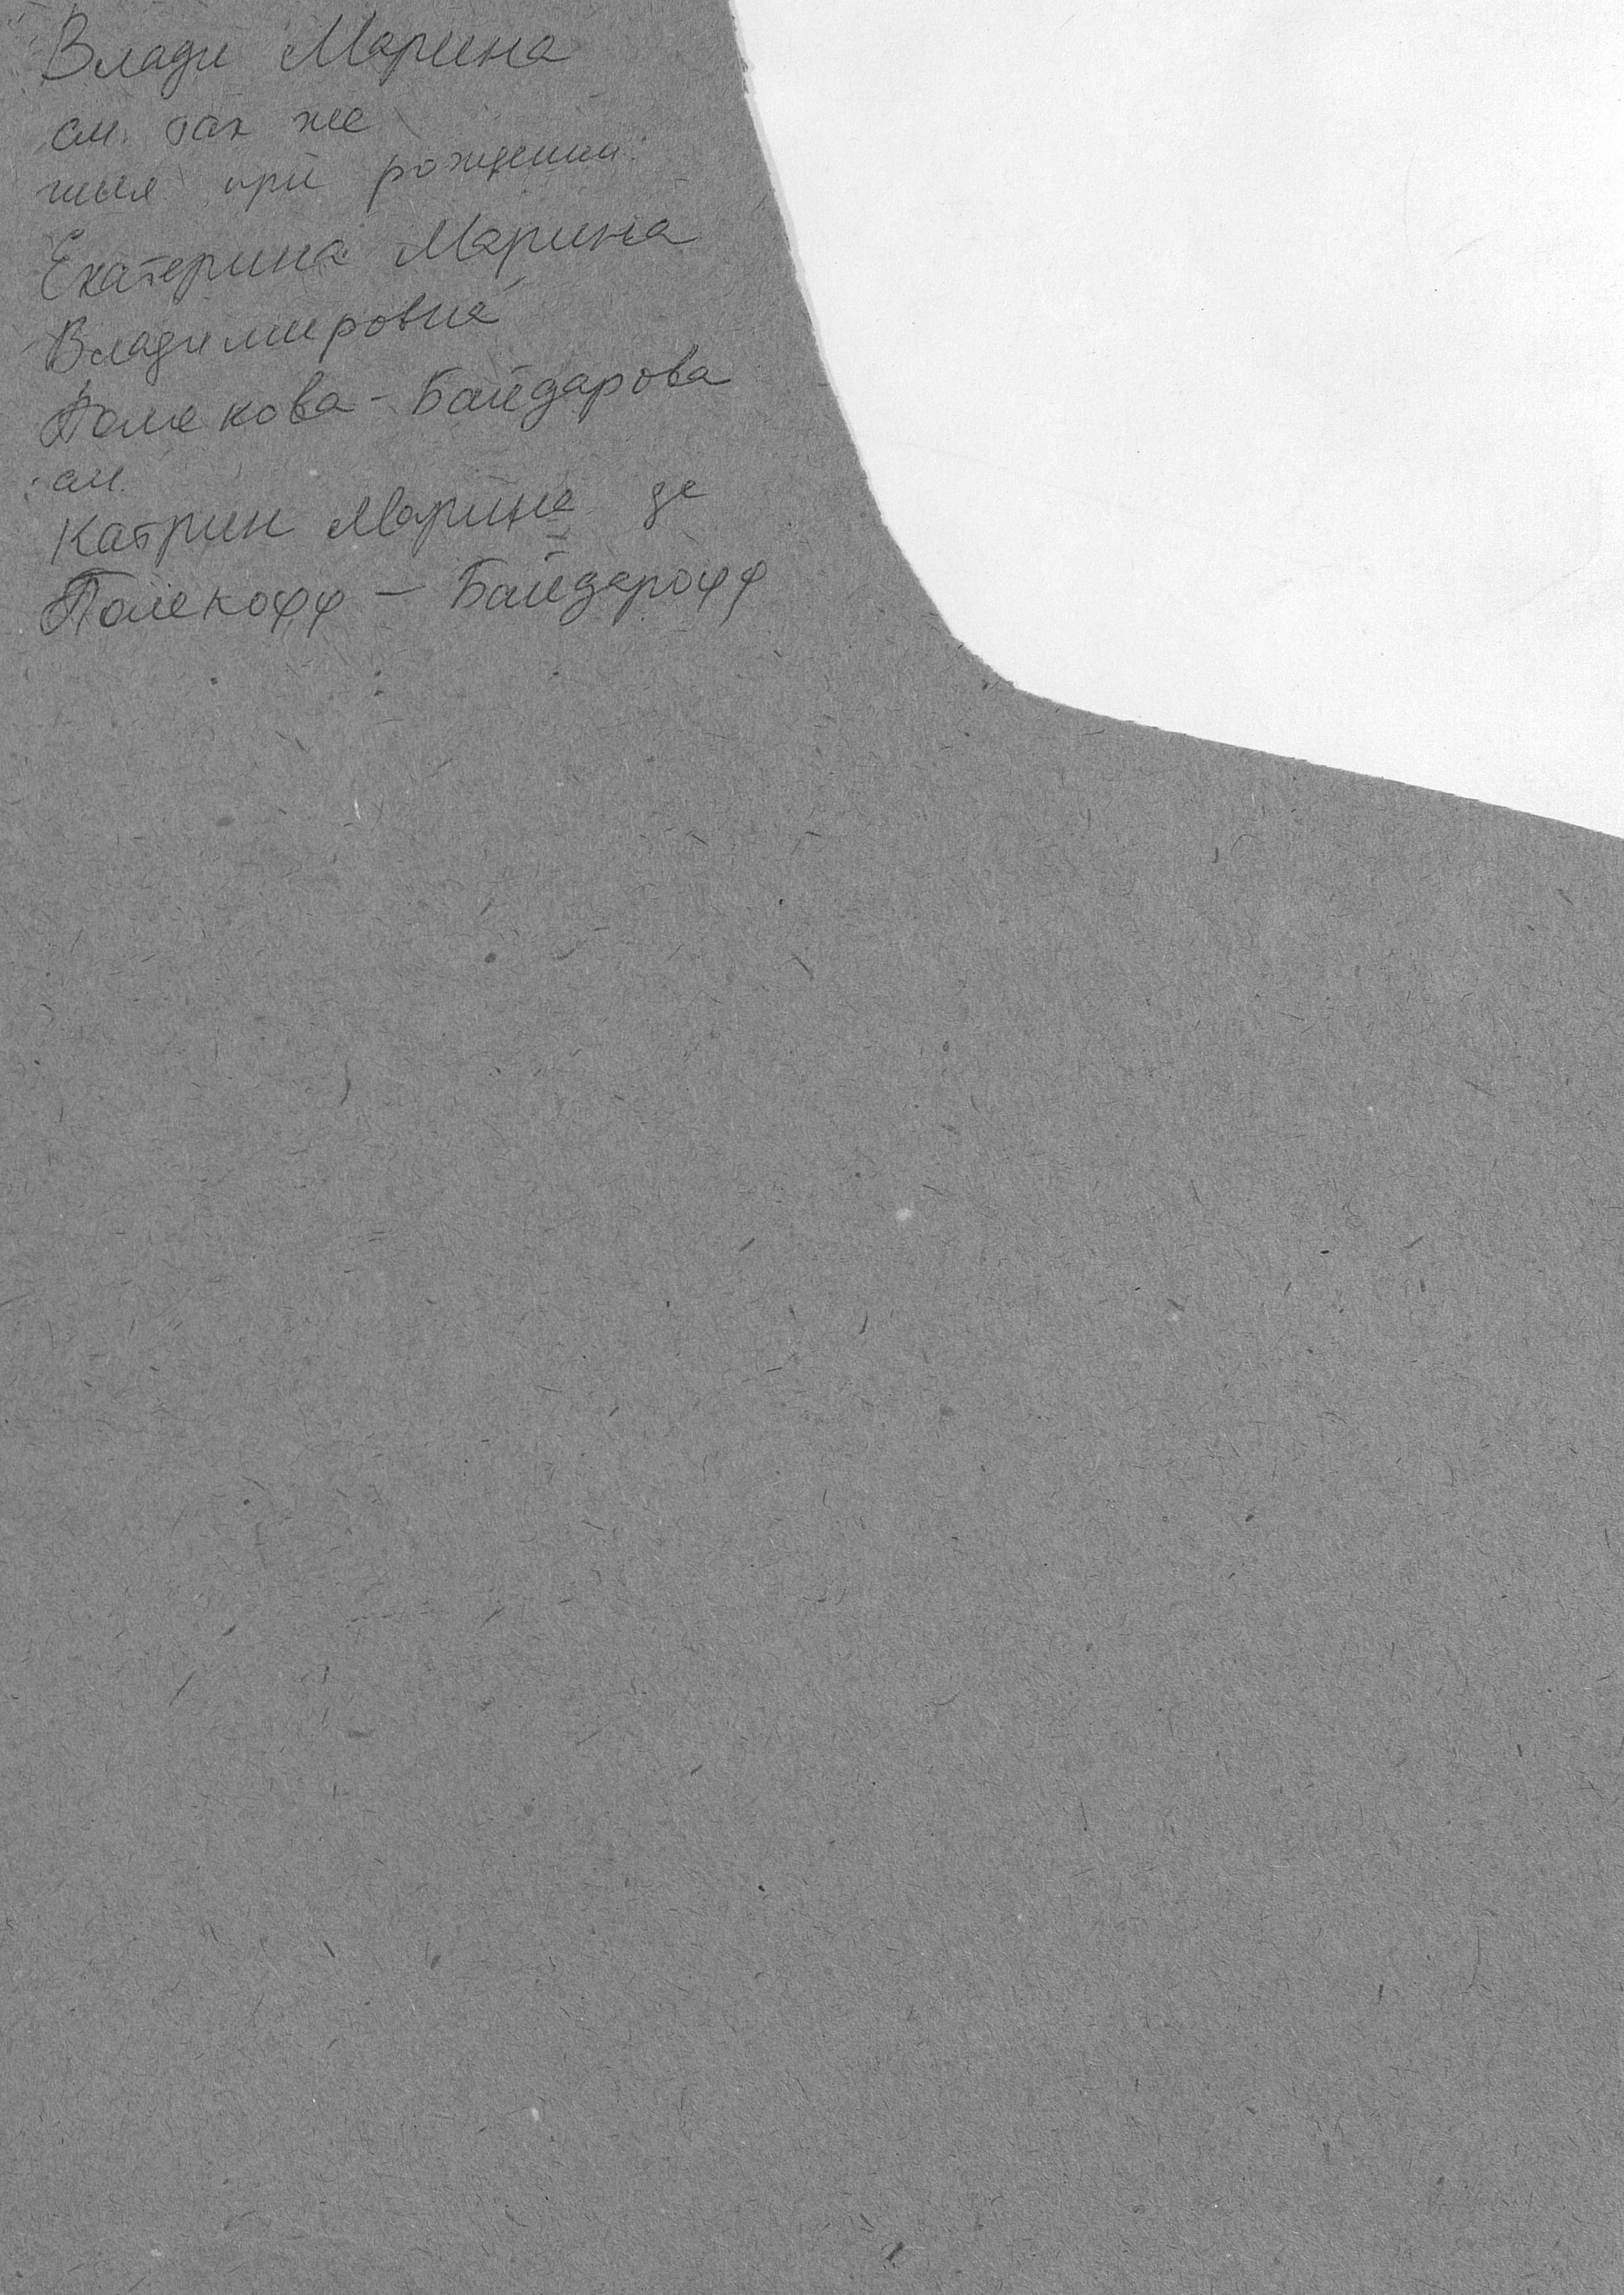 Влади Марина
см. так же
имя при рождении:
Екатерина Марина
Владимировна
Полякова - Байдарова
см.
Катрин Марина де
Полякофф - Байдарофф